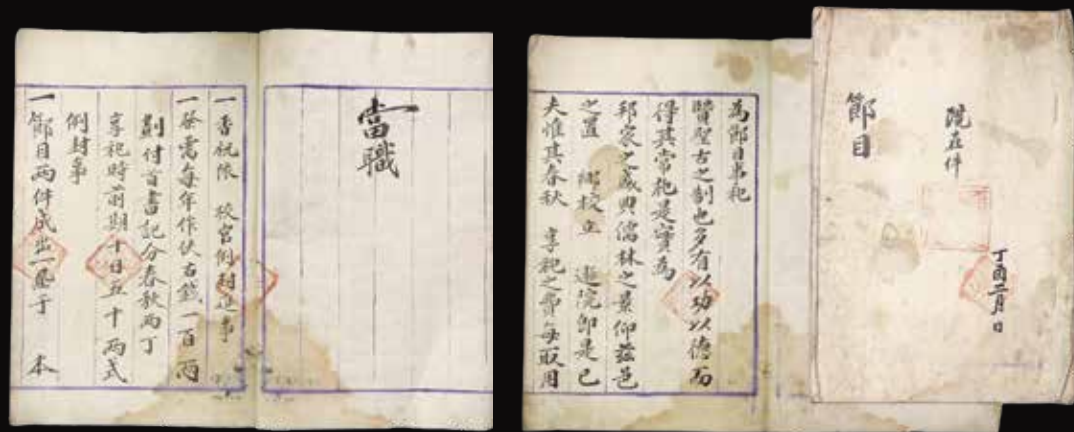 丁酉二月 日
院在件
節目
為節目事祀
賢聖古之制也多有以功以德而
得其常祀是實為
邦家之盛典儒林之景仰茲邑
之置 鄉校立 遺院卽是已
夫惟其春秋 享祀之費每取用
當職
一香祝依 校宮例封進事
一祭需每年作伏右錢一百兩
劃付首書記分春秋兩丁
享祀時前期十日五十兩式
例封事
一節目兩件成出一置于 本